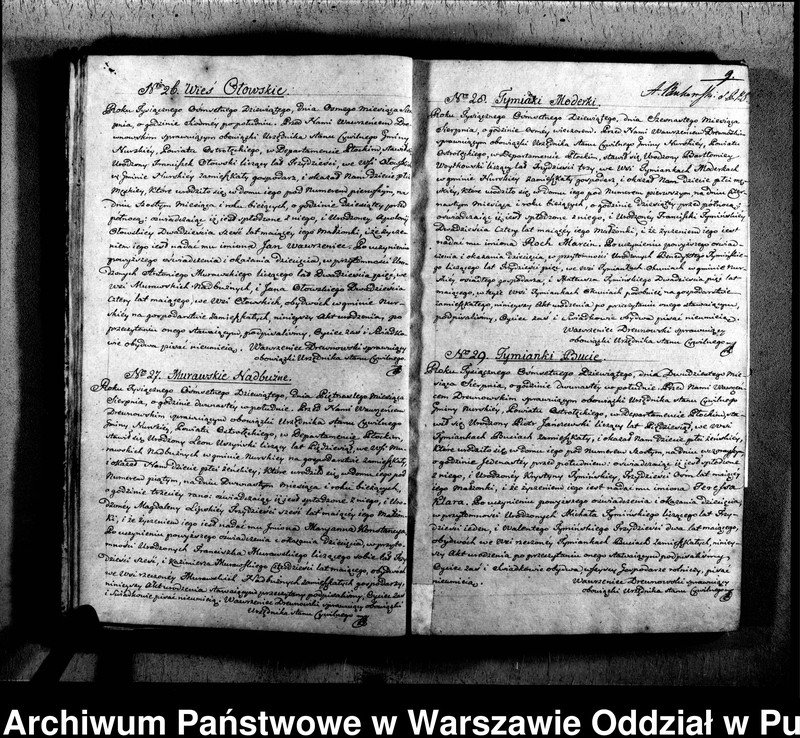 No 26. Wieś Ołowskie.
Roku Tysiącznego Ośmsetnego Dziewiątego, dnia Osmego Miesiąca Sier-
pnia, o godzinie siódmey po południu. Przed Nami Wawrzeńcem Dre-
wnowskim sprawuiącym obowiązki Urzędnika Stanu Cywilnego Gminy
Nurskiey, Powiatu Ostrołęckiego, w Departamencie Płockim, stawił się
Urodzony Ołowski liczący lat Trzydzieści, we wsi Ołowskich
w gminie Nurskiey zamieszkały gospodarz, i okazał Nam dziecie płci
męzkiey, które urodziło się w domu iego pod Numerem pierwszym, na dniu
Szóstym Miesiąca i roku bieżących, o godzinie dziewiątey przed
północą; oświadczaiąc iż iest spłodzone z niego, i Urodzoney
Ołowskiey Dwadzieścia Sześć lat maiącey iego małżonki, i że życze-
niem iego iest nadać mu imiona Jan Wawrzeniec. Po uczynieniu
powyższego oświadczenia i okazaniu dziecięcia, w przytomności Uro-
dzonych Antoniego Murawskiego liczącego lat Dwadzieścia pięć, we
Wsi Murawskich Nadbużnych, i Jana Ołowskiego Dwadzieścia
Cztery lat maiącego, we Wsi Ołowskich, obydwóch w gminie Nur-
skiey na gospodarstwie zamieszkałych, ninieyszy Akt urodzenia, po
przeczytaniu onego stawaiącym, podpisaliśmy, Oyciec zaś i Świadko-
wie obydwa pisać nieumieią. Wawrzeniec Drewnowski sprawuiący
obowiązki Urzędnika stanu Cywilnego
No 27. Murawskie Nadbużne.
Roku Tysiącznego Ośmsetnego Dziewiątego, dnia Piętnastego Miesiąca
Sierpnia, o godzinie dwunastey w południe. Przed Nami Wawrzeńcem
Drewnowskim, sprawuiącym obowiązki Urzędnika Stanu Cywilnego
Gminy Nurskiey, Powiatu Ostrołęckiego, w Departamencie Płockim,
stawił się Urodzony Leon Uszyński liczący lat Pięćdziesiąt, we wsi Mu-
rawskich Nadbużnych w gminie Nurskiey na gospodarstwie zamieszkały,
i okazał Nam dziecie płci żeńskiey, które urodziło się w domu iego pod
Numerem piątym, na dniu Dwunastym miesiąca i roku bieżących,
o godzinie trzeciey rano; oświadczaiąc iż iest spłodzone z niego, i Uro-
dzoney Magdaleny Lipskiey Trzydzieści sześć lat maiącey iego Małżon-
ki, i że życzeniem iego iest nadać mu imiona Maryanna Konstancya.
Po uczynieniu powyższego oświadczenia i okazaniu dziecięcia, w przyto-
mności Urodzonych Franciszka Murawskiego liczącego sobie lat Trzy-
dzieści sześć, i Kazimierza Murawskiego Czterdzieści lat maiącego, obydwóch
we Wsi rzeczoney Murawskich Nadbużnych zamieszkałych gospodarzy,
ninieyszy Akt urodzenia stawaiącym przeczytany podpisaliśmy, Oyciec zaś
i Świadkowie pisać nieumieią. Wawrzeniec Drewnowski sprawuiący obowiązki
Urzędnika stanu Cywilnego
9
No 28. Tymianki Moderki.
Roku Tysiącznego Ośmsetnego Dziewiątego, dnia Miesiąca
Sierpnia, o godzinie ósmey wieczorem. Przed Nami Wawrzeńcem Drewnowskim
sprawuiącym obowiązki Urzędnika Stanu Cywilnego Gminy Nurskiey, Powiatu
Ostrołęckiego, w Departamencie Płockim, stawił się Urodzony Bartłomiey
liczący lat Trzydzieści trzy, we Wsi Tymiankach Moderkach
w gminie Nurskiey zamieszkały gospodarz, i okazał Nam dziecie płci mę-
zkiey, które urodziło się w domu iego pod Numerem pierwszym, na dniu
miesiąca i roku bieżących, o godzinie dziesiątey przed północą;
oświadczaiąc iż iest spłodzone z niego, i Urodzoney Franciszki Tymińskiey
Dwadzieścia Cztery lat maiącey iego Małżonki, i że życzeniem iego iest
nadać mu imiona Roch Marcin. Po uczynieniu powyższego oświad-
czenia i okazaniu dziecięcia, w przytomności Urodzonych Benedykta Tymińskie-
go liczącego lat Trzydzieści pięć, we Wsi Tymiankach Skuniach w gminie Nur-
skiey osiadłego gospodarza, i Mateusza Tymińskiego Dwadzieścia pięć lat ma-
iącego, w teyże Wsi Tymiankach Skuniach podobnież na gospodarstwie
zamieszkałego, ninieyszy Akt urodzenia po przeczytaniu onego stawaiącym,
podpisaliśmy, Oyciec zaś i Świadkowie obydwa pisać nieumieią.
Wawrzeniec Drewnowski sprawuiący
obowiązki Urzędnika Stanu Cywilnego
No 29. Tymianki Bucie.
Roku Tysiącznego Ośmsetnego Dziewiątego, dnia Dwudziestego Mie-
siąca Sierpnia, o godzinie dwunastey w południe. Przed Nami Wawrzeń-
cem Drewnowskim sprawuiącym obowiązki Urzędnika Stanu Cywilnego
Gminy Nurskiey, Powiatu Ostrołęckiego, w Departamencie Płockim, sta-
wił się Urodzony Piotr Janczewski liczący lat Pięćdziesiąt, we Wsi
Tymiankach Buciach zamieszkały, i okazał Nam dziecie płci żeńskiey,
które urodziło się w domu iego pod Numerem Szóstym, na dniu wczorayszym
o godzinie Jedenastey przed południem; oświadczaiąc iż iest spłodzone
z niego, i Urodzoney Krystyny Tymińskiey, Trzydzieści Ośm lat maiącey
iego Małżonki, i że życzeniem iego iest nadać mu imiona Teressa
Klara. Po uczynieniu powyższego oświadczenia i okazaniu dziecięcia,
w przytomności Urodzonych Michała Tymińskiego liczącego lat Trzy-
dzieści Jeden, i Walentego Tymińskiego Trzydzieści dwa lat maiącego,
obydwóch we Wsi rzeczoney Tymiankach Buciach zamieszkałych, niniey-
szy Akt urodzenia po przeczytaniu onego stawaiącym podpisaliśmy,
Oyciec zaś i Świadkowie obydwa Gospodarze rolniczy, pisać
nieumieią.
Wawrzeniec Drewnowski sprawuiący
obowiązki Urzędnika stanu Cywilnego
Archiwum Państwowe w Warszawie Oddział w Pu